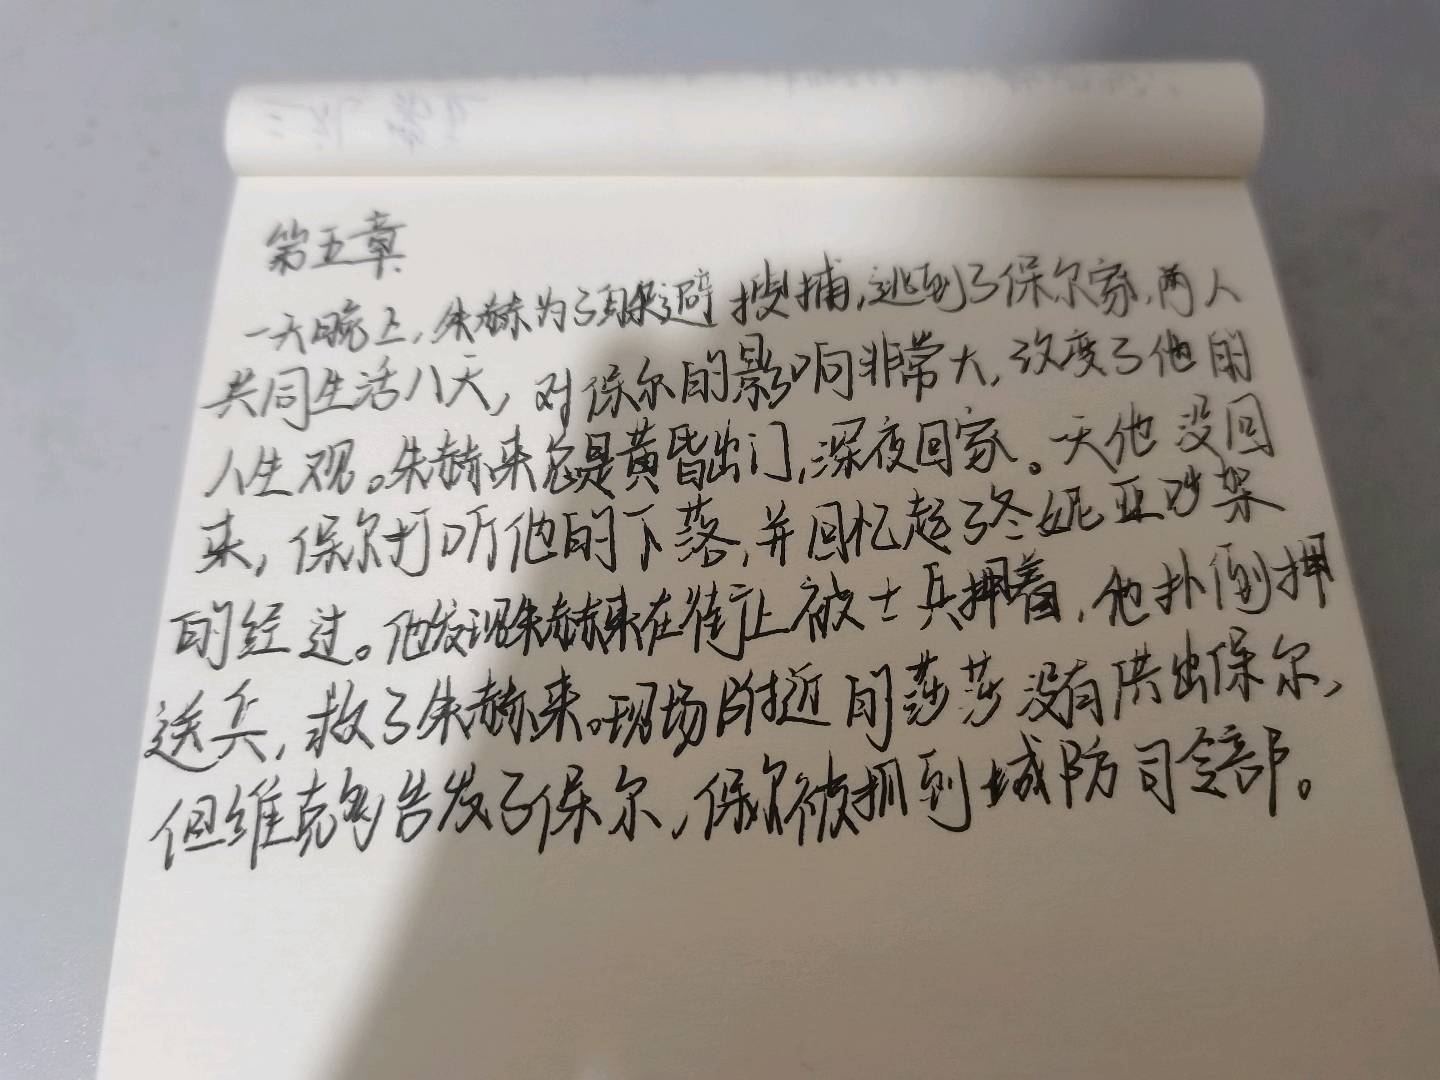 第五章
一天晚上,朱赫为了躲避搜捕,逃到了保尔家,两人
共同生活八天,对保尔的影响非常大,改变了他的
人生观。朱赫来总是黄昏出门,深夜回家。一天他没回
来,保尔打听他的下落,并回忆起了冬妮亚吵架
的经过。他发现朱赫来在街上被士兵押着,他扑倒押
送兵,救了朱赫来。现场附近的莎莎没有供出保尔,
但维克多告发了保尔,保尔被抓到城防司令部。